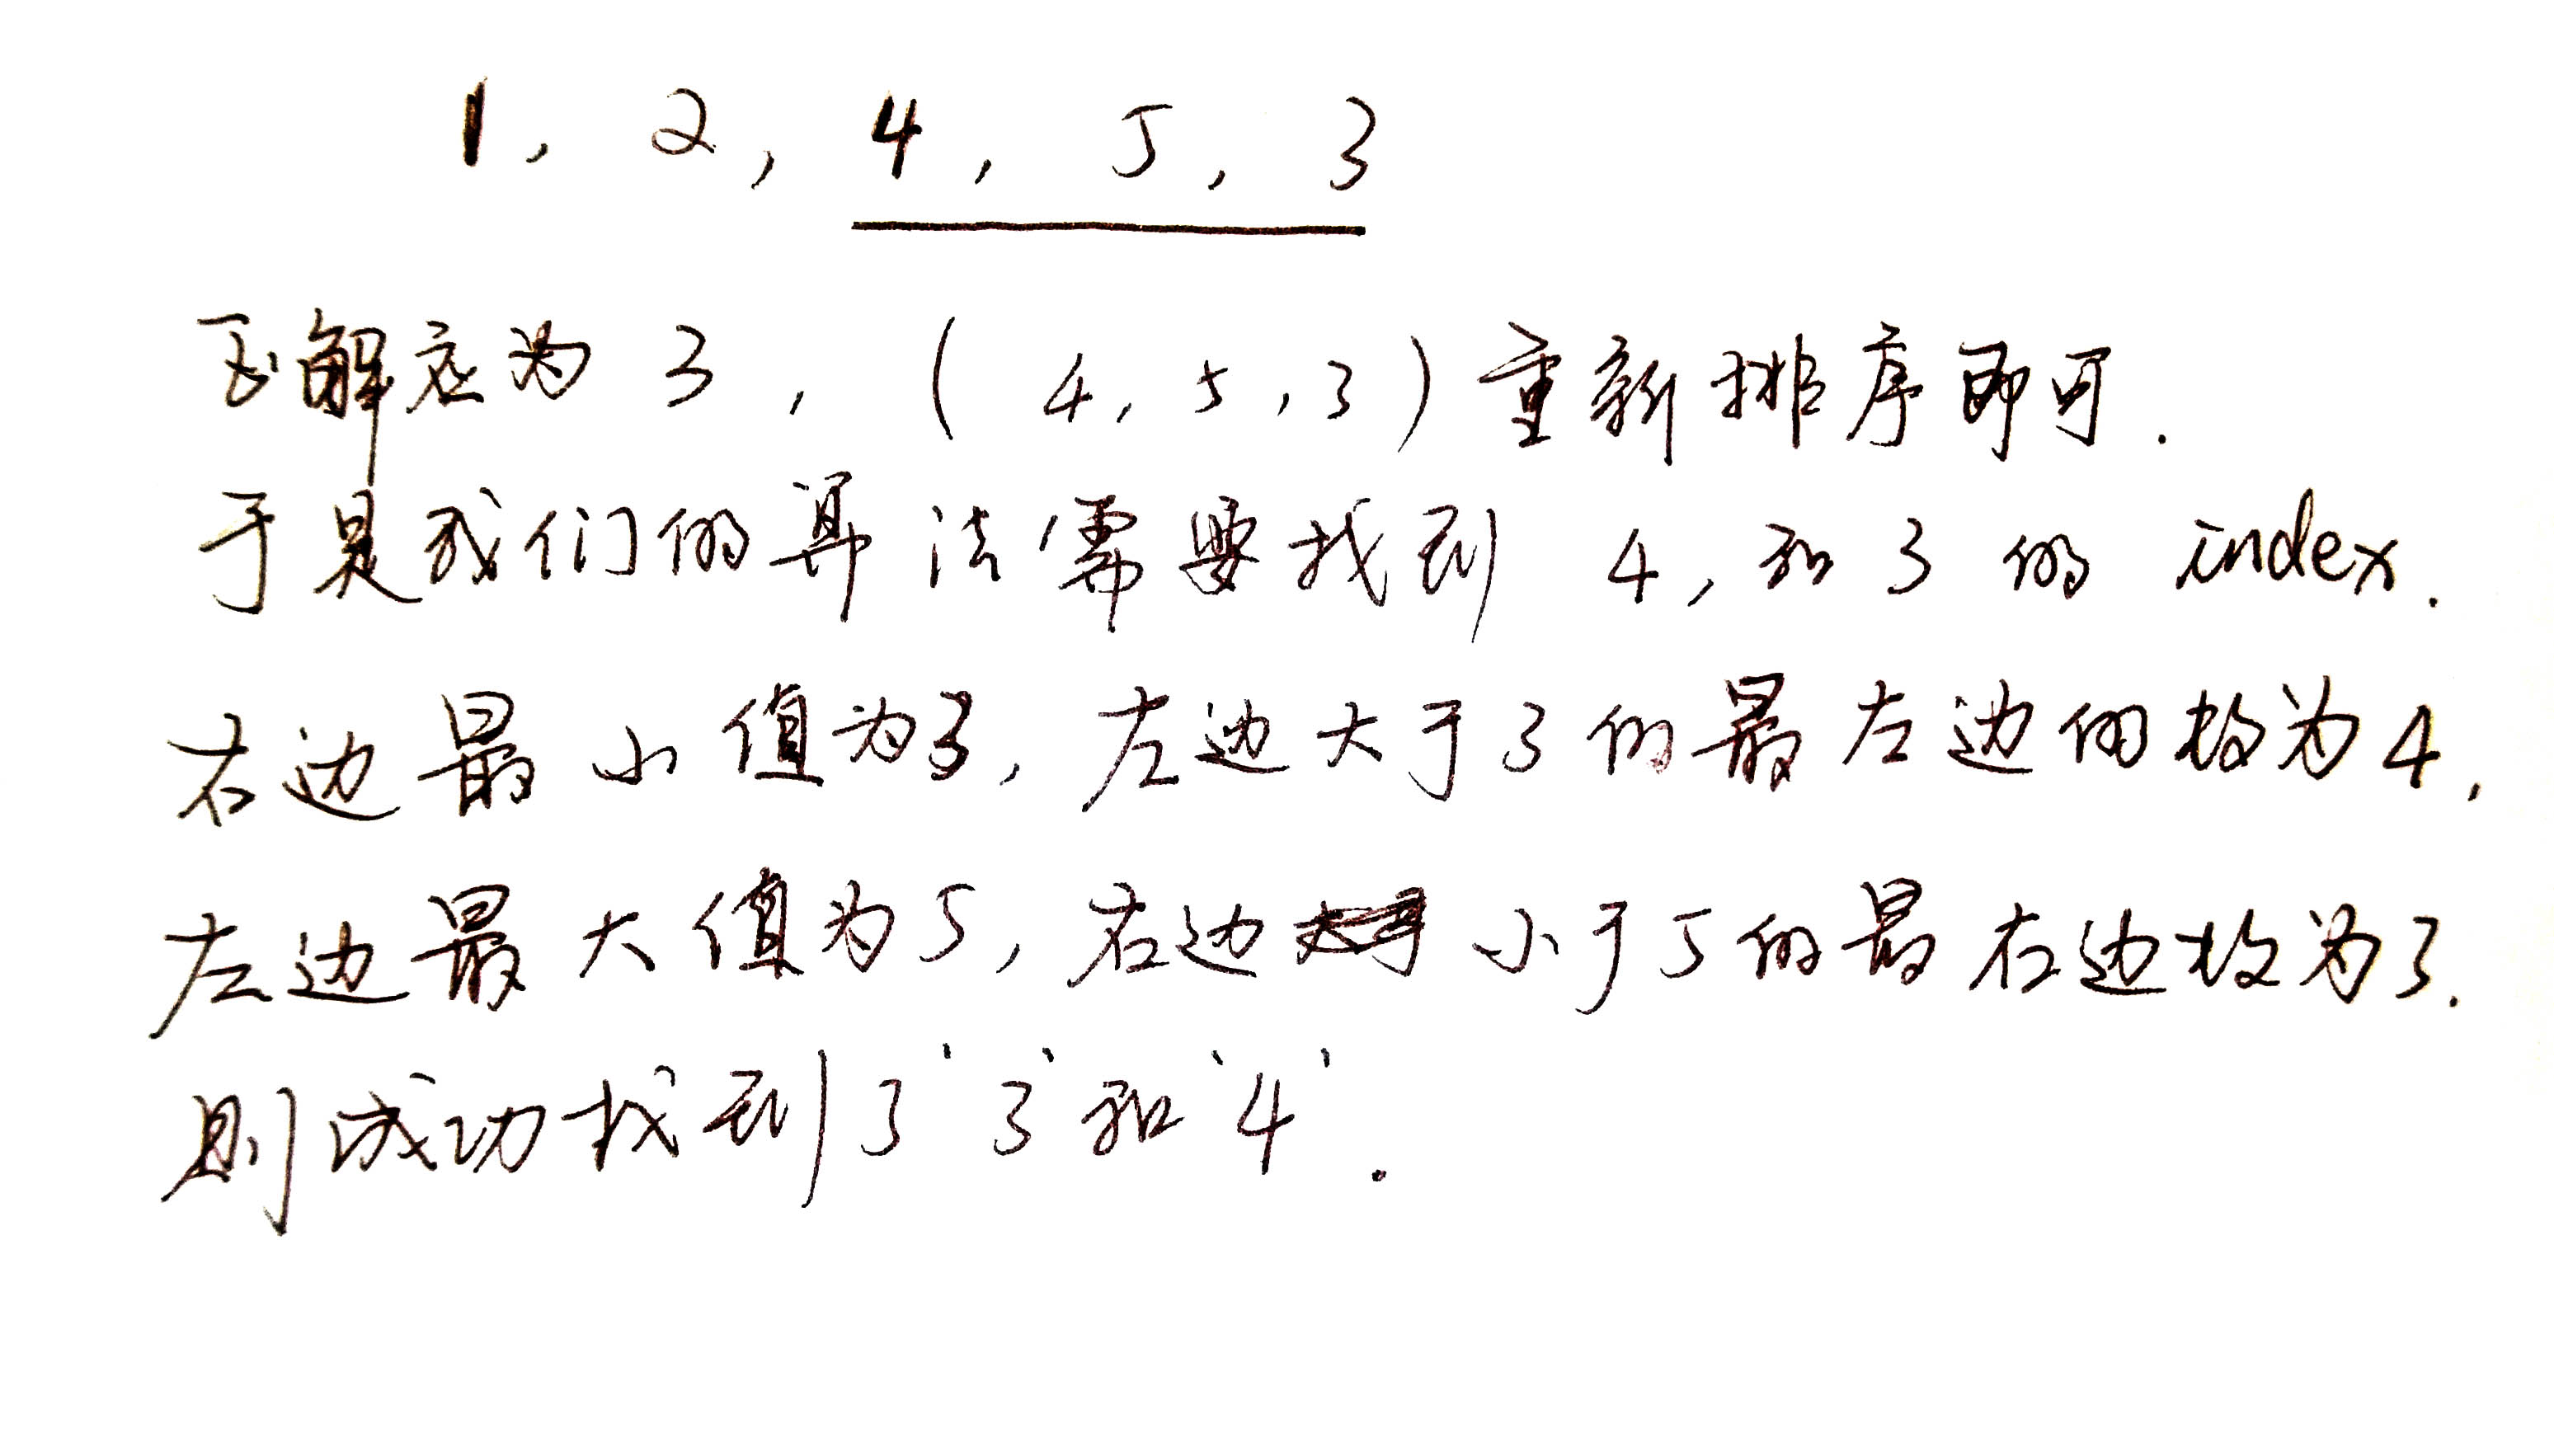 1, 2, 4, 5, 3
正解应为 3, (4, 5, 3) 重新排序即可.
于是我们的算法需要找到 4, 和 3 的 index.
右边最小值为3, 左边大于3的最左边的数为4,
左边最大值为5, 右边 小于5的最右边数为3.
则成功找到了'3'和'4'.